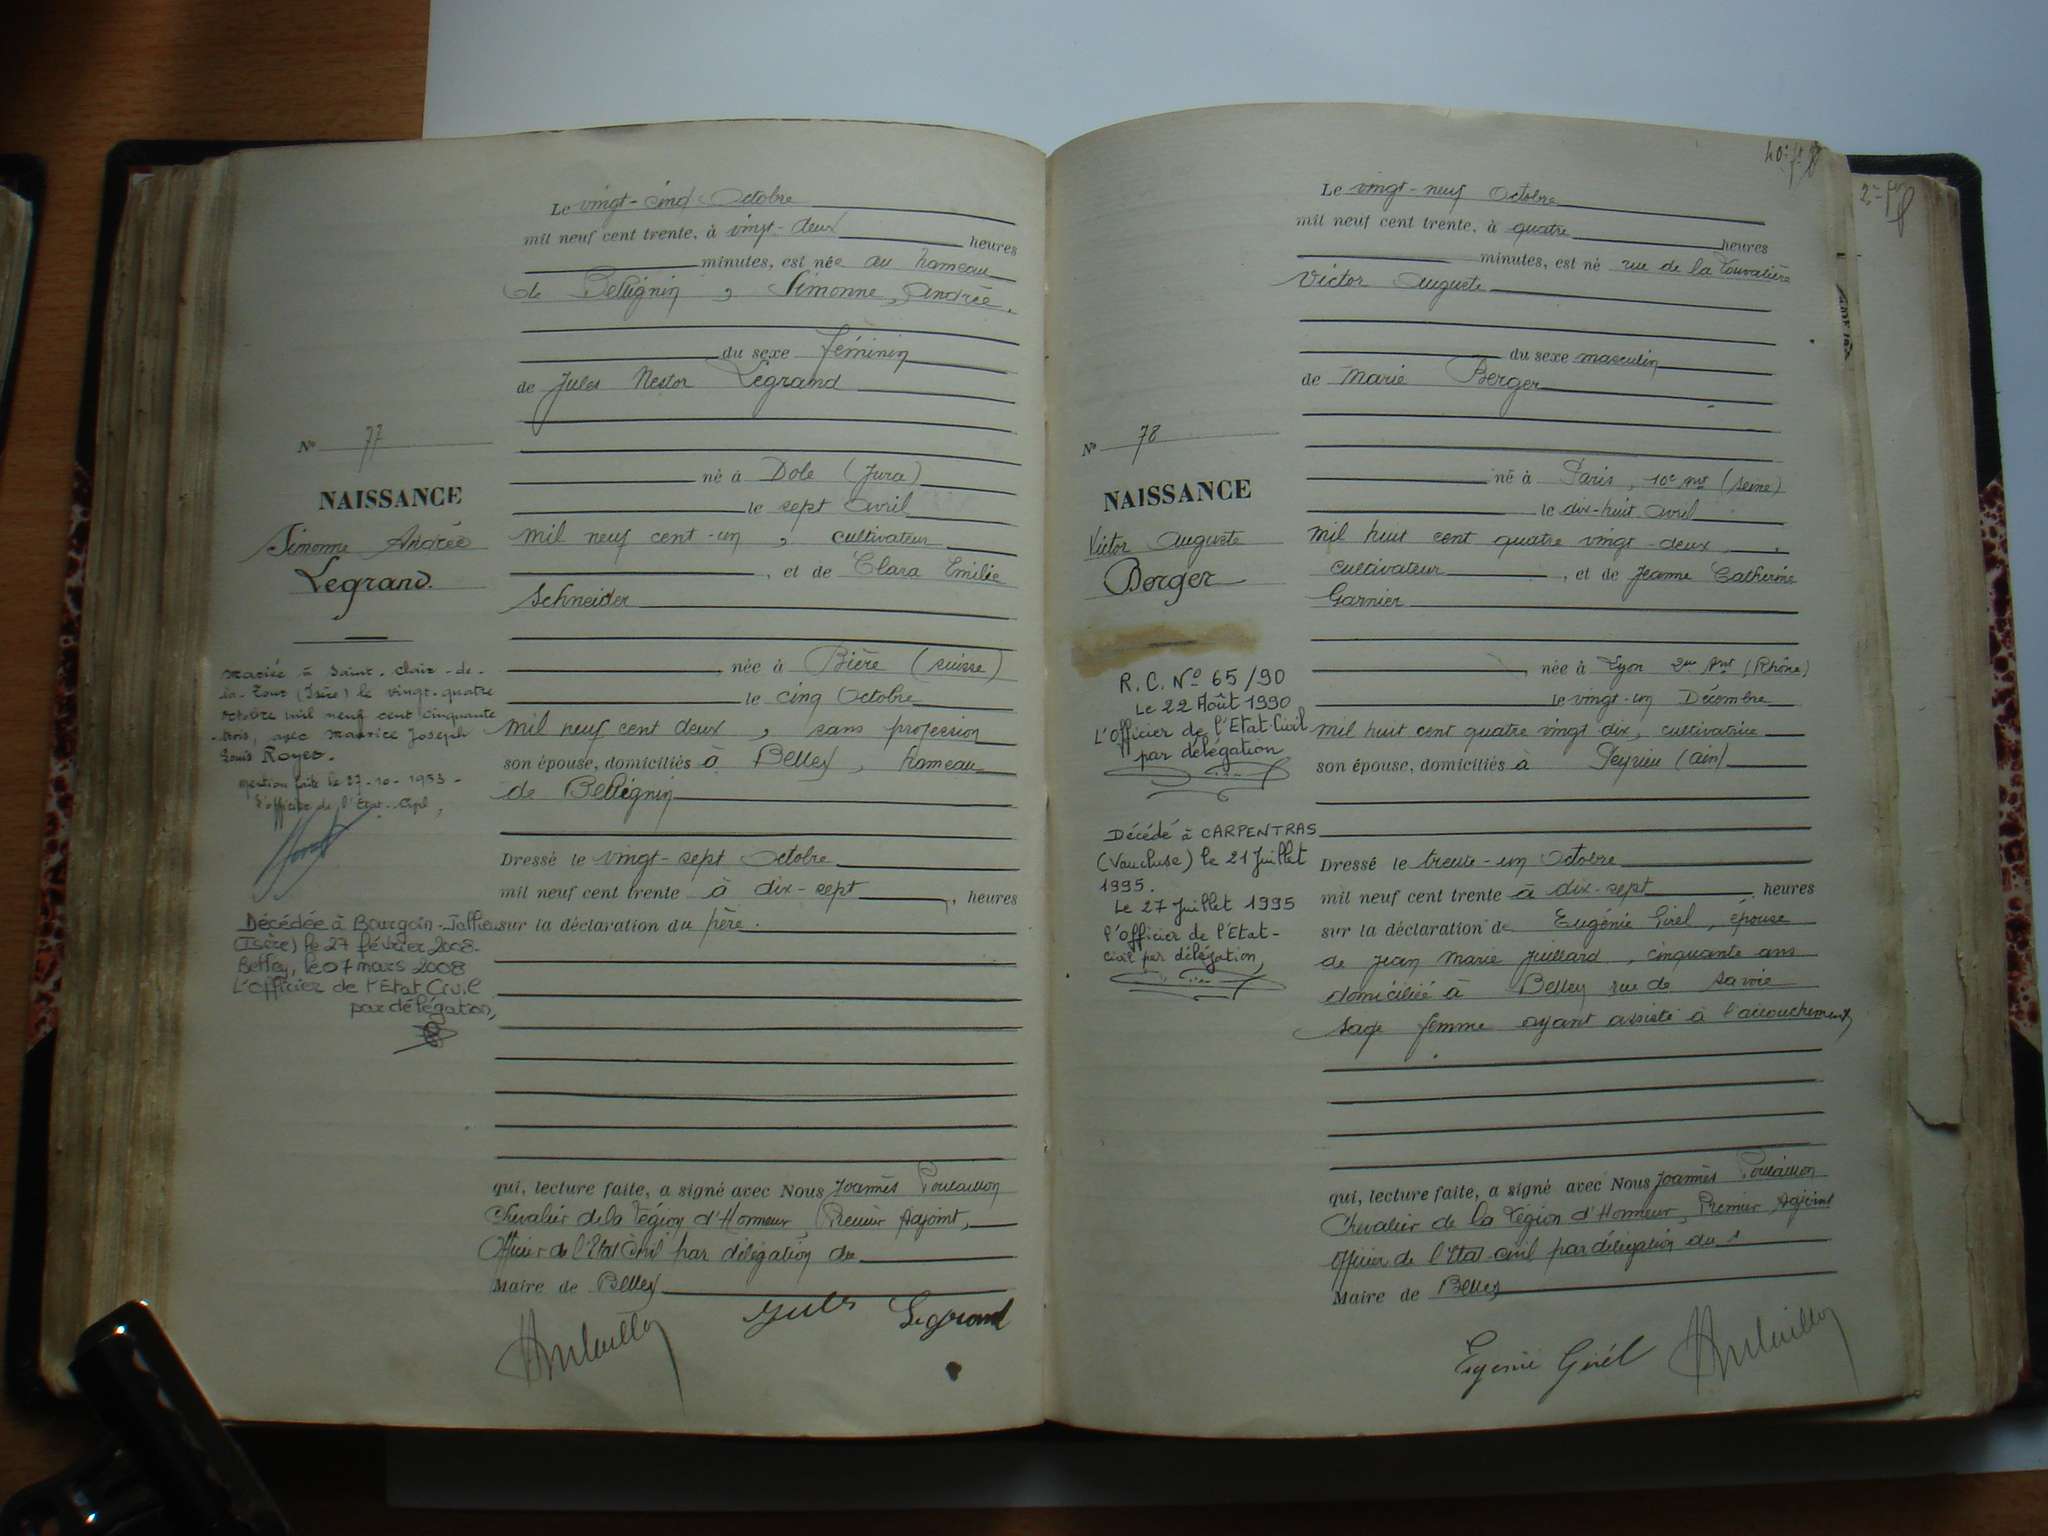 Le vingt-cinq Octobre
mil neuf cent trente, à vingt-deux heures
minutes, est née au hameau
de Bettignin, Simonne, Andrée.
du sexe féminin
de Jules Nestor Legrand
né à Dole (Jura)
le sept avril
mil neuf cent-un, cultivateur
, et de Clara Emilie
Schneider
née à Bière (suisse)
le cinq Octobre
mil neuf cent deux, sans profession
son épouse, domiciliés à Belley, hameau
de Bettignin
Dressé le vingt-sept Octobre
mil neuf cent trente à dix-sept, heures
sur la déclaration du père.
qui, lecture faite, a signé avec Nous Joannès Poulaillon
Chevalier de la Légion d'Honneur, Premier Adjoint,
Officier de l'Etat Civil par délégation du
Maire de Belley
Jules Legrand
N° 77
NAISSANCE
Simonne Andrée
Legrand.
Mariée à Saint-Clair-de-
la-Tour (Isère) le vingt-quatre
octobre mil neuf cent cinquante
-trois, avec Maurice Joseph
Louis Royer.
Mention faite le 27-10-1953-
L'officier de l'Etat-Civil,
Décédée à Bourgoin-Jallieu
(Isère) le 27 février 2008-
Belley, le 07 mars 2008
L'Officier de l'Etat Civil
par délégation,
40e
2e
Le vingt-neuf Octobre
mil neuf cent trente, à quatre heures
minutes, est né rue de la
Victor Auguste
du sexe masculin
de Marie Berger
né à Paris, 10e Art (Seine)
le dix-huit avril
mil huit cent quatre vingt-deux,
cultivateur, et de Jeanne Catherine
Garnier
née à Lyon 2me Art (Rhône)
le vingt-un Décembre
mil huit cent quatre vingt dix, cultivatrice
son épouse, domiciliés à Peyrieu (Ain)
Dressé le trente-un Octobre
mil neuf cent trente à dix-sept heures
sur la déclaration de Eugénie Girel, épouse
de Jean Marie Juillard, cinquante ans
domiciliée à Belley rue de Savoie
sage femme ayant assisté à l'accouchement
qui, lecture faite, a signé avec Nous Joannès Poulaillon
Chevalier de la Légion d'Honneur, Premier Adjoint
Officier de l'Etat-civil par délégation du
Maire de Belley
Eugenie Girel
N° 78
NAISSANCE
Victor Auguste
Berger
R.C. N° 65/90
Le 22 Août 1990
L'Officier de l'Etat-Civil
par délégation
Décédé à CARPENTRAS
(Vaucluse) le 21 Juillet
1995.
Le 27 Juillet 1995
l'Officier de l'Etat-
Civil par délégation,